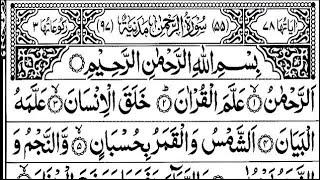 اٰيَاتُهَا ٧٨ (٥٥) سُوْرَةُ الرَّحْمٰنِ مَدَنِيَّةٌ (٩٧) رُكُوْعَاتُهَا ٣
بِسْمِ اللّٰهِ الرَّحْمٰنِ الرَّحِيْمِ
اَلرَّحْمٰنُ ١ عَلَّمَ الْقُرْاٰنَ ٢ خَلَقَ الْاِنْسَانَ ٣ عَلَّمَهُ
الْبَيَانَ ٤ اَلشَّمْسُ وَالْقَمَرُ بِحُسْبَانٍ ٥ وَّالنَّجْمُ وَ